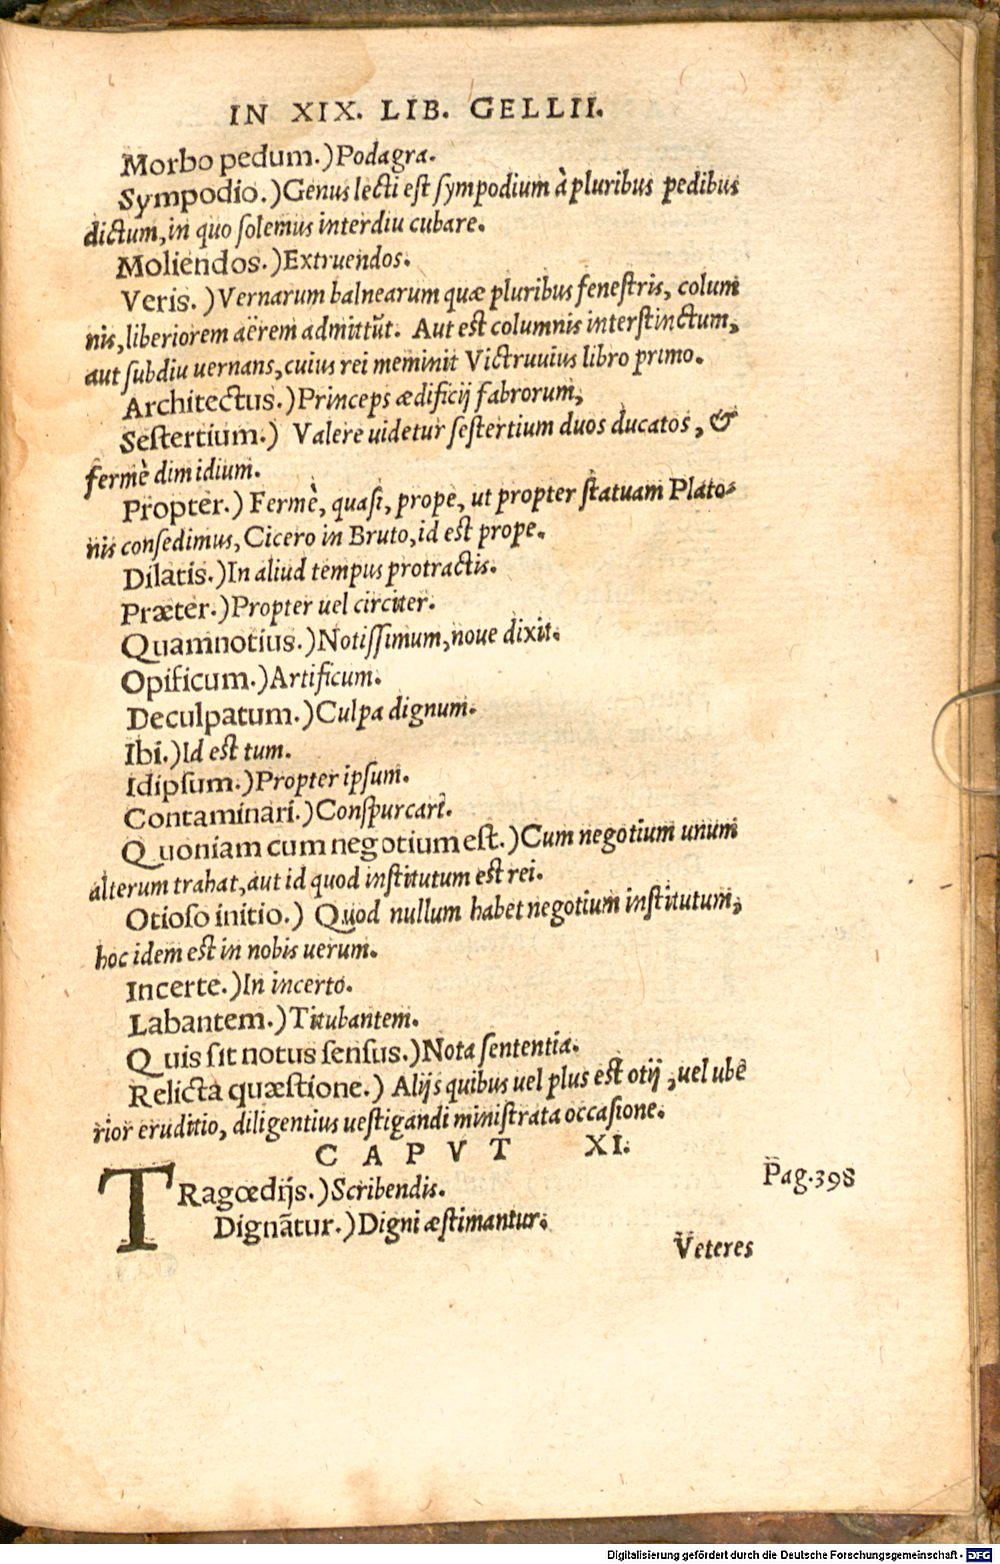 IN XIX. LIB. GELLII.
Morbo pedum.) Podagra.
Sympodio.) Genus lecti est sympodium à pluribus pedibus
dictum, in quo solemus interdiu cubare.
Moliendos.) Extruendos.
Veris.) Vernarum balnearum quæ pluribus fenestris, colum
nis, liberiorem aërem admittũt. Aut est columnis interstinctum,
aut subdiu uernans, cuius rei meminit Victruuius libro primo.
Architectus.) Princeps ædificij fabrorum,
Sestertium.) Valere uidetur sestertium duos ducatos, &
fermè dimidium.
Propter.) Fermè, quasi, propè, ut propter statuam Plato-
nis consedimus, Cicero in Bruto, id est prope.
Dilatis.) In aliud tempus protractis.
Præter.) Propter uel circiter.
Quamnotius.) Notissimum, noue dixit.
Opificum.) Artificum.
Deculpatum.) Culpa dignum.
Ibi.) Id est tum.
Idipsum.) Propter ipsum.
Contaminari.) Conspurcari.
Quoniam cum negotium est.) Cum negotium unum
alterum trahat, aut id quod institutum est rei.
Otioso initio.) Quod nullum habet negotium institutum,
hoc idem est in nobis uerum.
Incerte.) In incerto.
Labantem.) Titubantem.
Quis sit notus sensus.) Nota sententia.
Relicta quæstione.) Alijs quibus uel plus est otij, uel ube
rior eruditio, diligentius uestigandi ministrata occasione.
CAPVT XI.
TRagœdijs.) Scribendis.
Pag. 398
Dignãtur.) Digni æstimantur.
Veteres
Digitalisierung gefördert durch die Deutsche Forschungsgemeinschaft - DFG